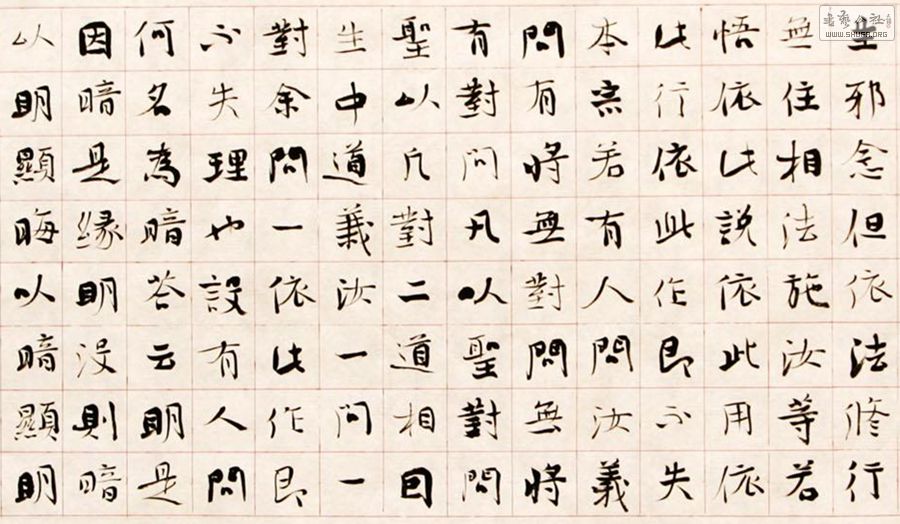 生邪念但依法修行
無住相法施汝等若
悟依此說依此用依
此行依此作即不失
本宗若有人問汝義
問有將無對問無將
有對問凡以聖對問
聖以凡對二道相因
生中道義汝一問一
對余問一依此作即
不失理也設有人問
何名為暗答云明是
因暗是緣明沒則暗
以明顯晦以暗顯明
書藝公社
WWW.SHUFA.ORG